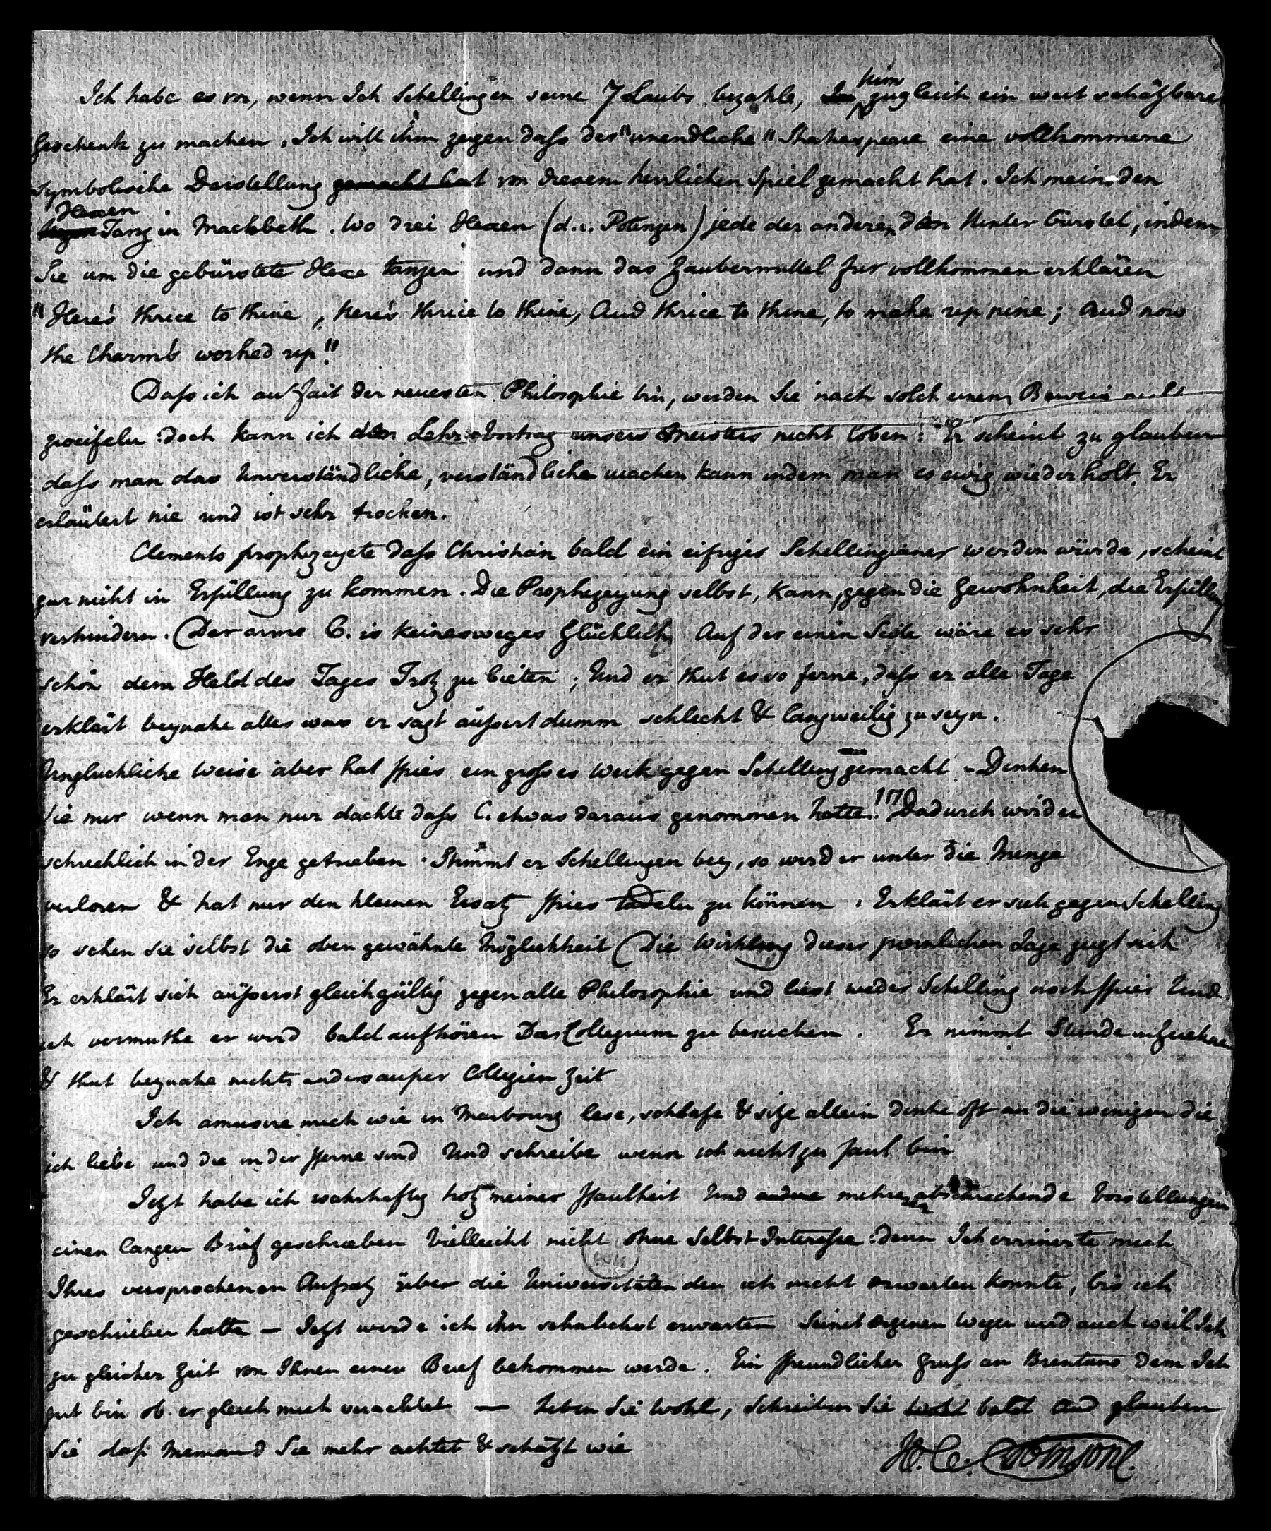 Ich habe es vor, wenn Ich Schellingen seine 7 Laubs bezahle, ihm zugleich ein weit schäzbares
Geschenk zu machen. Ich will ihm zeigen dass der "unendliche" Shakespeare eine vollkommene
symbolische Darstellung gemacht hat von diesem herrlichen Spiel gemacht hat. Ich meine den
Hexen Tanz in Mackbeth. Wo drei Hexen (d.i. Potenzen) jede der anderen den Hinter bürstet, indem
Sie um die gebürstete Hexe tanzen und dann das Zaubermittel für vollkommen erklären
"Here's thrice to thine, here's thrice to thine, And thrice to thine, to make up nine; and now
the Charm's worked up."
Dass ich au fait der neuesten Philosophie bin, werden Sie nach solch einem Beweis nicht
zweifeln doch kann ich den Lehr-Vortrag unsers Meisters nicht loben: Er scheint zu glauben
dass man das Unverständliche, verständliche machen kann indem man es ewig wiederholt. Er
erläutert nie und ist sehr trocken.
Clements prophezeyete dass Christian bald ein eifriger Schellingianer werden würde, scheint
gar nicht in Erfüllung zu kommen. Die Prophezeyung selbst, kann, gegen die Gewohnheit, die Erfüllung
verhindern. (Der arme C. is keinesweges Glücklich) Auf der einen Seite wäre es sehr
schön dem Held des Tages Trotz zu bieten; Und er thut es so ferne, dass er alle Tage
erklärt beynahe alles was er sagt äussert dumm schlecht & langweilig zu seyn.
Unglückliche weise aber hat Fries ein grosses Werk gegen Schelling gemacht - Denken
Sie nur wenn man nur dachte dass C. etwas daraus genommen hatte!!! Dadurch wird er
schrecklich in der Enge getrieben. Stimmt er Schellingen bey, so wird er unter die Menge
verloren & hat nur den kleinen Ersatz Fries tadeln zu können. Erklärt er sich gegen Schelling
so sehen sie selbst die oben gewähnte Möglichkeit (Die Wirkung dieser peinlichen Lage zeigt sich
Er erklärt sich äusserst gleichgültig gegen alle Philosophie und liest weder Schelling noch Fries Und
ich vermuthe er wird bald aufhören Das Collegium zu besuchen. Er nimmt Stunde im
& thut beynahe nichts anders ausser Collegien Zeit
Ich amusire mich wie in Marbourg lese, schlafe & size allein denke oft an die wenigen die
ich liebe und die in der Ferne sind Und schreibe wenn ich nicht zu faul bin
Jezt habe ich wahrhaftig trotz meiner Faulheit Und andre mehrere abschreckende Vorstellungen
einen langen Brief geschrieben Vielleicht nicht ohne Selbst Interesse: denn Ich errinerte mich
Ihres versprochenen Aufsatz über die Universitäten den ich nicht erwarten konnte, bis ich
geschrieben hatte — Jezt werde ich ihn sehnlichst erwarten Seinet eigenen wegen und auch weil Ich
zu gleicher Zeit von Ihnen einen Brief bekommen werde. Ein freundlicher Gruss an Brentano dem Ich
gut bin ob er gleich mich verachtet — Leben Sie wohl, schreiben Sie bald bald And glauben
Sie dass Niemand Sie mehr achtet & schäzt wie
H. C. Robinson